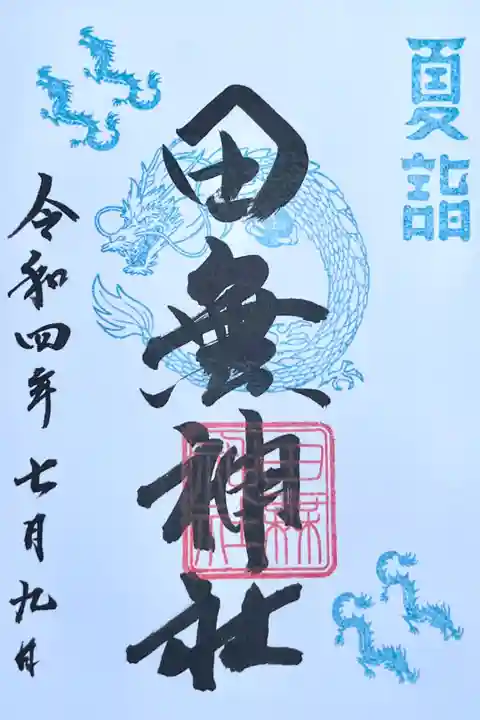 夏詣
田無神社
令和四年七月九日
田無神社